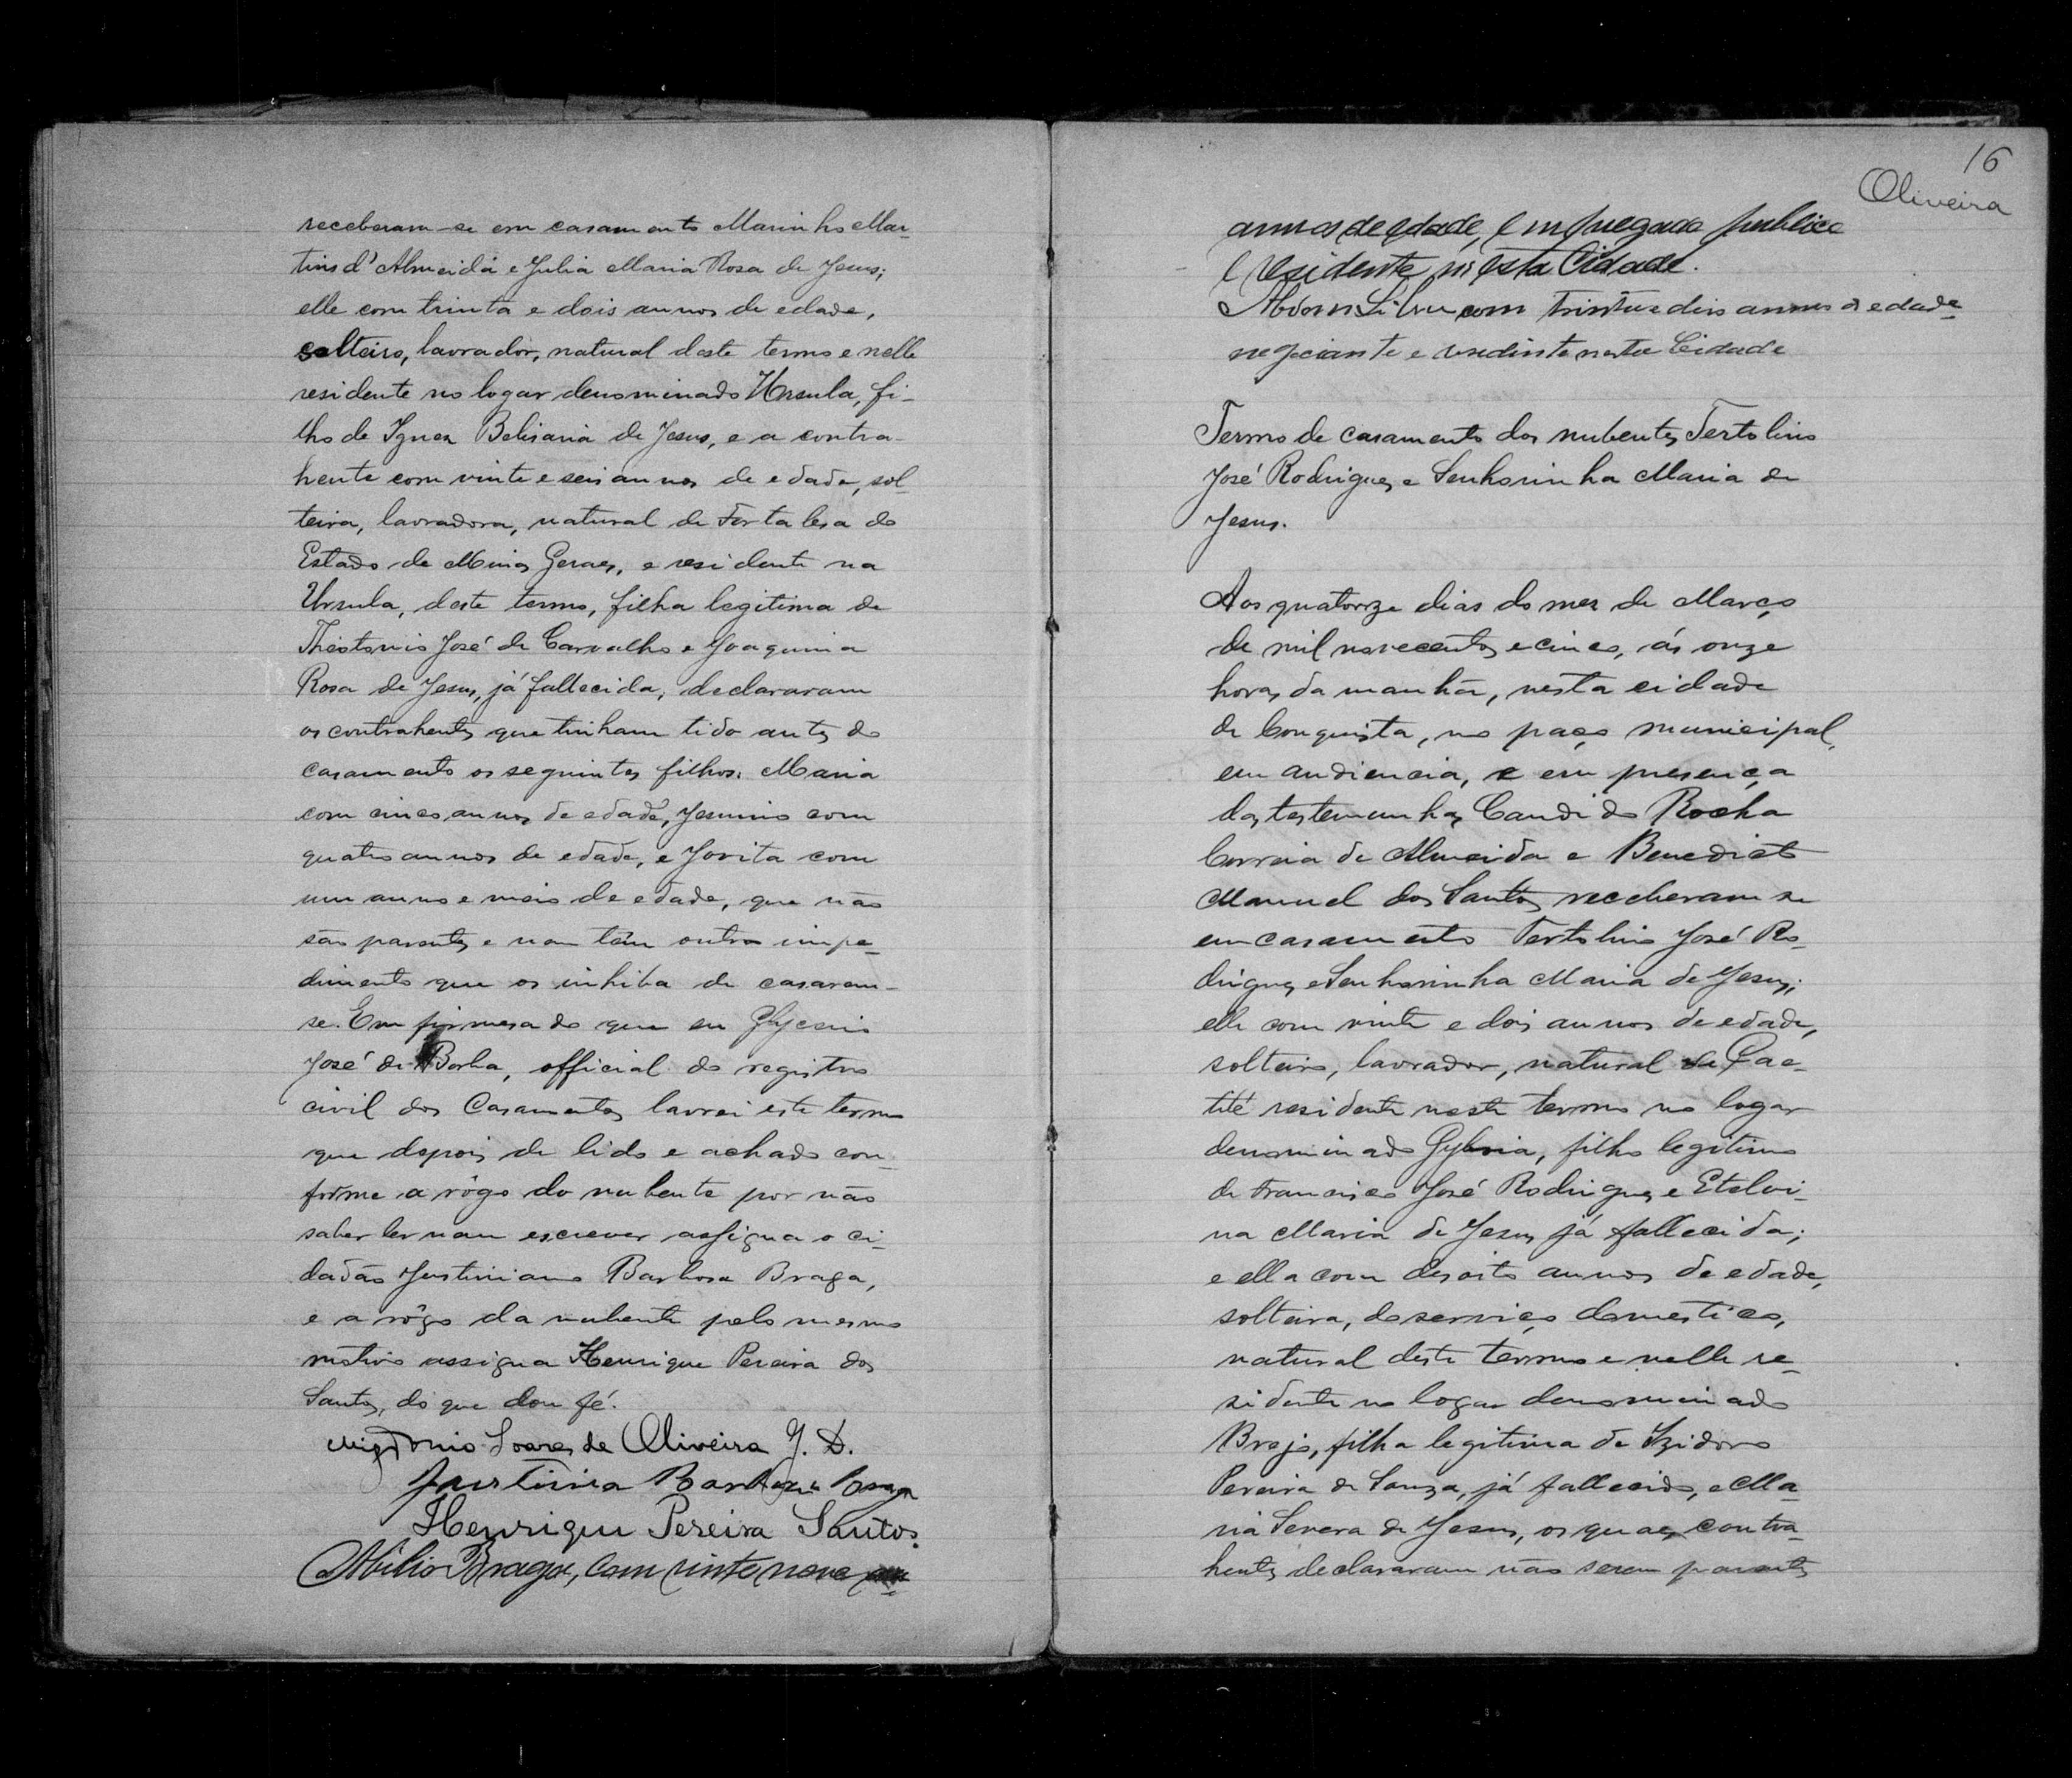 receberam-se em casamento Marinho Mar-
tins d'Almeida e Julia Maria Rosa de Jesus;
elle com trinta e dois annos de edade,
solteiro, lavrador, natural deste termo e nelle
residente no logar denominado Ursula, fi-
lho de Ignez Belisaria de Jesus, e a contra-
hente com vinte e seis annos de edade, sol-
teira, lavradora, natural de Fortalesa do
Estado de Minas Geraes, e residente na
Ursula, deste termo, filha legitima de
Theotonio José de Carvalho e Joaquina
Rosa de Jesus, já fallecida, declararam
os contrahentes que tinham tido antes do
casamento os seguintes filhos: Maria
com cinco annos de edade, Jesuino com
quatro annos de edade, e Jovita com
um anno e meio de edade, que não
são parentes e nem têm outro impe-
dimento que os inhiba de casarem-
se. Em firmesa do que eu
José de Borba, official do registro
civil dos Casamentos lavrei este termo
que depois de lido e achado con-
forme a rôgo do nubente por não
saber ler nem escrever assigna o ci-
dadão Justiniano Barbosa Braga,
e a rôgo da nubente pelo mesmo
motivo assigna Henrique Pereira dos
Santos, do que dou fé.
Migdonio Soares de Oliveira J. D.
Justinia Barbosa Braga
Henrique Pereira Santos.
Abilio Braga, com vinte nove
16
Oliveira
annos de edade, empregado publico
e residente n'esta Cidade.
com trinta e dois annos de edade
negociante e residente nesta Cidade
Termo de casamento dos nubentes Tertolino
José Rodrigues e Senhorinha Maria de
Jesus.
Aos quatorze dias do mez de Março
de mil novecentos e cinco, ás onze
horas da manhã, nesta cidade
de Conquista, no paço municipal,
em audiencia, e em presença
das testemunhas Candido Rocha
Correia de Almeida e Benedicto
Manuel dos Santos receberam se
em casamento Tertolino José Ro-
drigues e Senhorinha Maria de Jesus;
elle com vinte e dois annos de edade,
solteiro, lavrador, natural de Cae-
tité residente neste termo no logar
denominado, filho legitimo
de Francisco José Rodrigues e Etelvi-
na Maria de Jesus já fallecida;
e ella com desoito annos de edade,
solteira, do serviço domestico,
natural deste termo e nelle re-
sidente no logar denominado
Brejo, filha legitima de Izidoro
Pereira de Souza, já fallecido, e Ma-
ria Severa de Jesus, os quaes contra-
hentes declararam não serem parentes